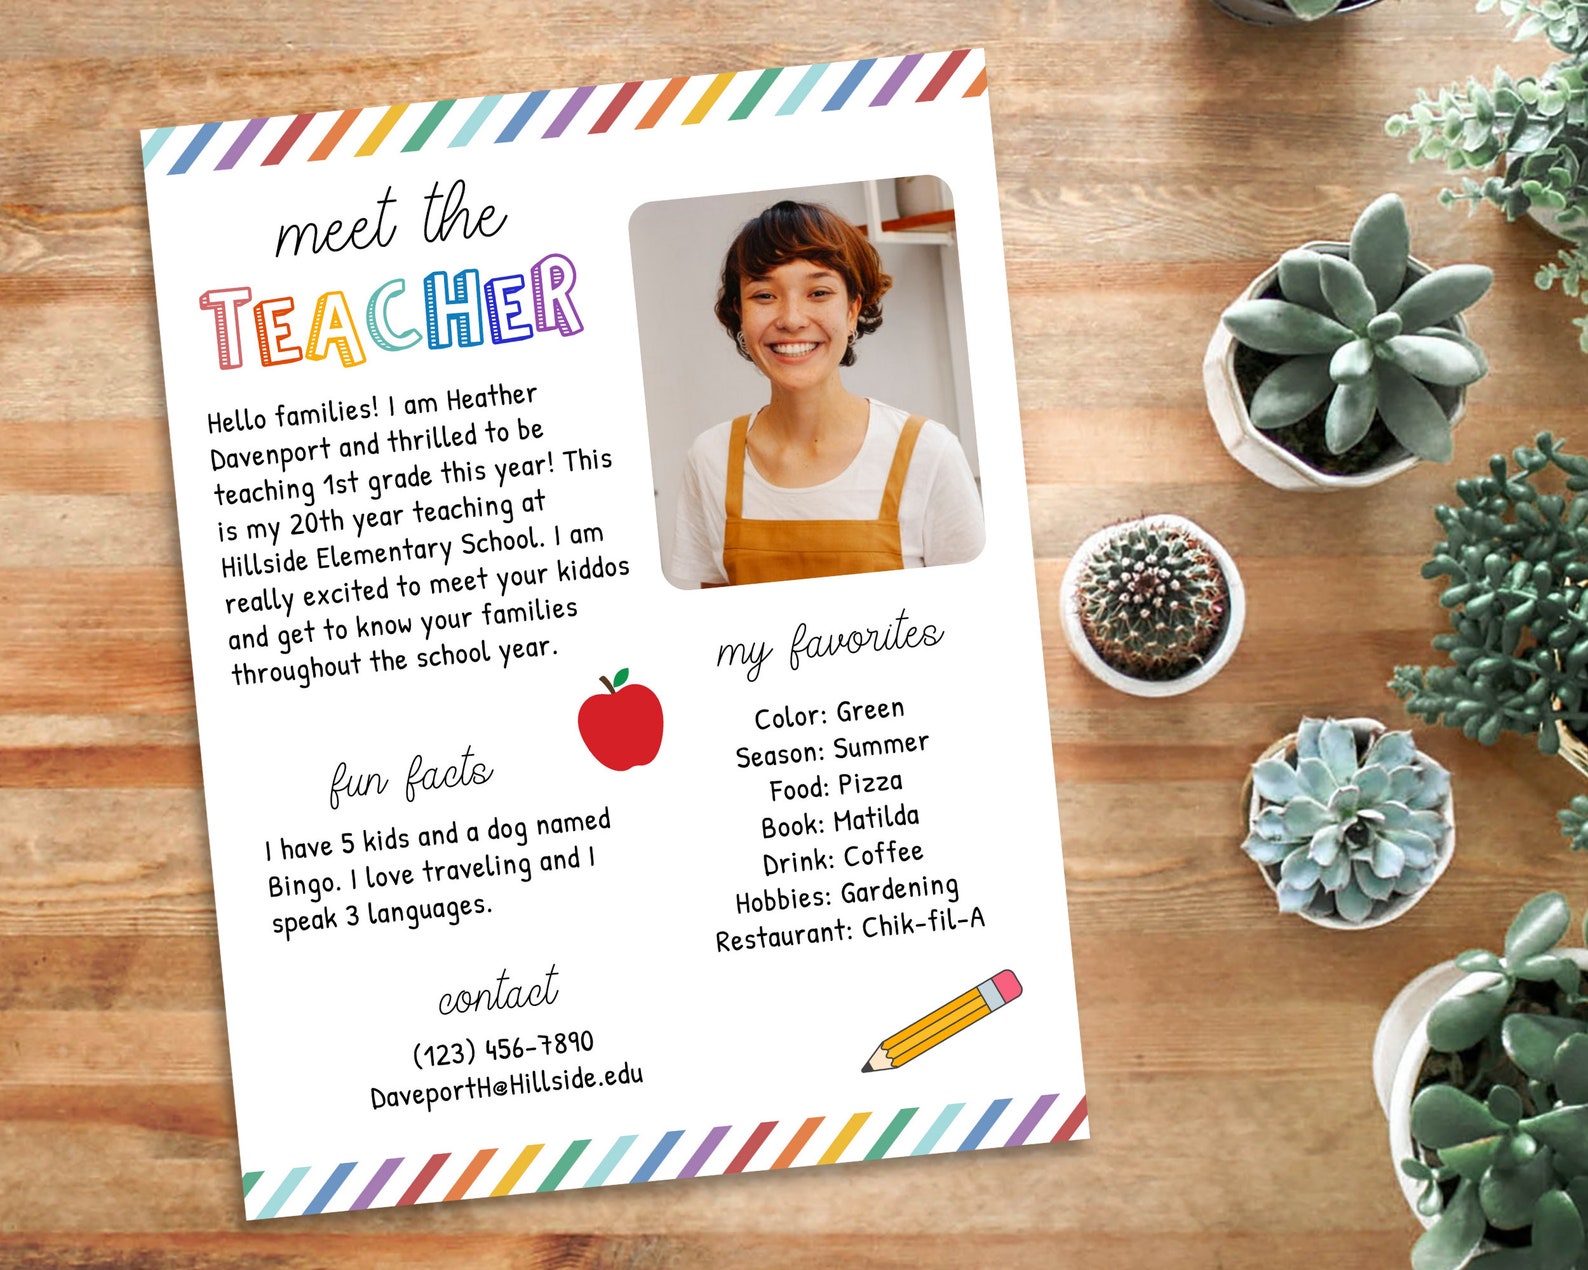 meet the
TEACHER
Hello families! I am Heather
Davenport and thrilled to be
teaching 1st grade this year! This
is my 20th year teaching at
Hillside Elementary School. I am
really excited to meet your kiddos
and get to know your families
throughout the school year.
fun facts
I have 5 kids and a dog named
Bingo. I love traveling and I
speak 3 languages.
contact
(123) 456-7890
DaveportH@Hillside.edu
my favorites
Color: Green
Season: Summer
Food: Pizza
Book: Matilda
Drink: Coffee
Hobbies: Gardening
Restaurant: Chik-fil-A